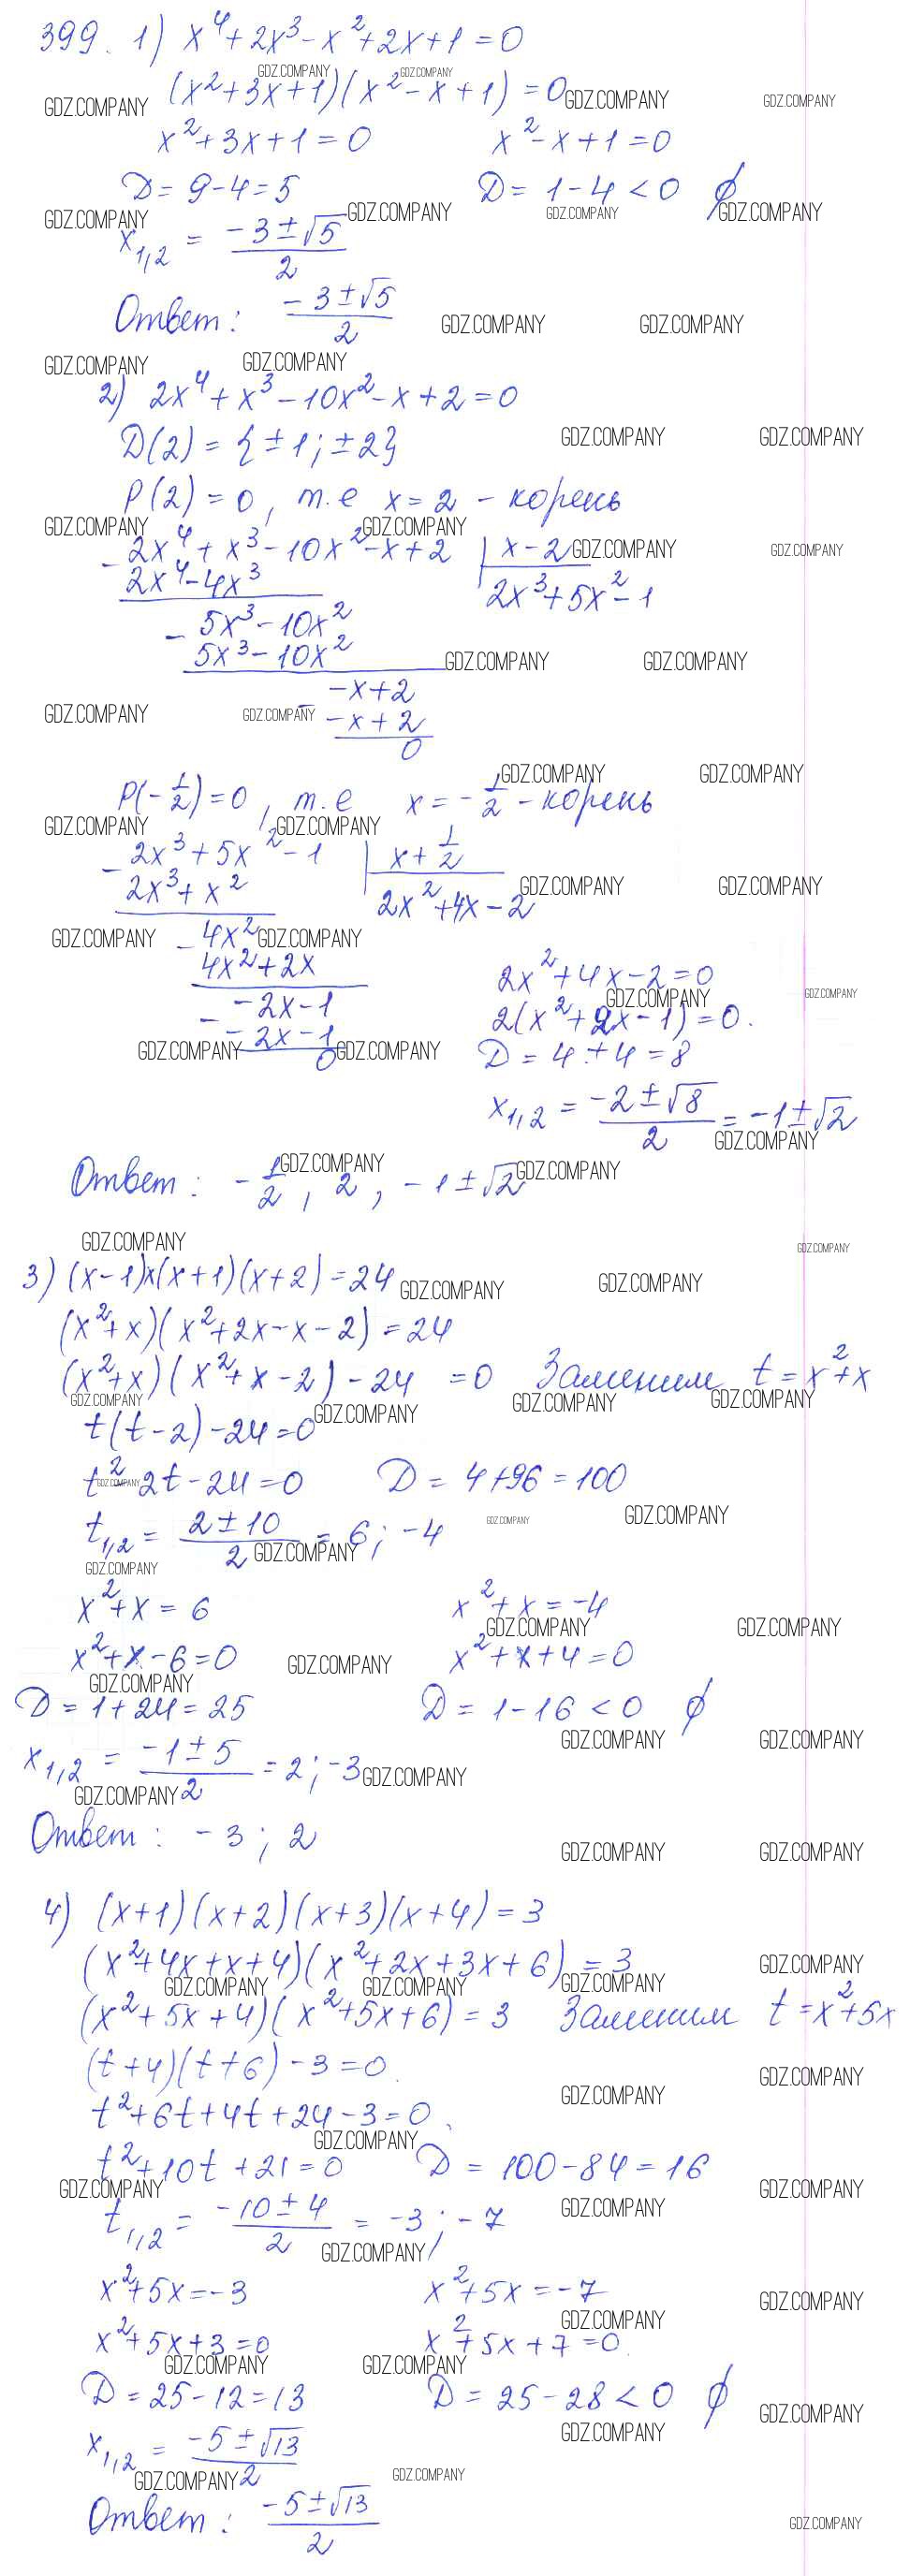 399. 1) x⁴+2x³-x²+2x+1=0
(x²+3x+1)(x²-x+1)=0
x²+3x+1=0 x²-x+1=0
D=9-4=5 D=1-4<0 ∅
x₁,₂ = (-3±√5)/2
Ответ: (-3±√5)/2
2) 2x⁴+x³-10x²-x+2=0
D(2)={±1;±2}
P(2)=0, т.е x=2 - корень
- 2x⁴+x³-10x²-x+2 | x-2
2x⁴-4x³ 2x³+5x²-1
- 5x³-10x²
5x³-10x²
- -x+2
-x+2
0
P(-1/2)=0, т.е x=-1/2 - корень
- 2x³+5x²-1 | x+1/2
2x³+x² 2x²+4x-2
- 4x²
4x²+2x
- -2x-1
-2x-1
0
2x²+4x-2=0
2(x²+2x-1)=0.
D=4+4=8
x₁,₂ = (-2±√8)/2 = -1±√2
Ответ: -1/2, 2, -1±√2
3) (x-1)x(x+1)(x+2)=24
(x²+x)(x²+2x-x-2)=24
(x²+x)(x²+x-2)-24 =0 Заменим t=x²+x
t(t-2)-24=0
t²-2t-24=0 D=4+96=100
t₁,₂ = (2±10)/2 = 6; -4
x²+x=6 x²+x=-4
x²+x-6=0 x²+x+4=0
D=1+24=25 D=1-16<0 ∅
x₁,₂ = (-1±5)/2 = 2; -3
Ответ: -3; 2
4) (x+1)(x+2)(x+3)(x+4)=3
(x²+4x+x+4)(x²+2x+3x+6)=3
(x²+5x+4)(x²+5x+6)=3 Заменим t=x²+5x
(t+4)(t+6)-3=0.
t²+6t+4t+24-3=0.
t²+10t+21=0 D=100-84=16
t₁,₂ = (-10±4)/2 = -3; -7
x²+5x=-3 x²+5x=-7
x²+5x+3=0 x²+5x+7=0.
D=25-12=13 D=25-28<0 ∅
x₁,₂ = (-5±√13)/2
Ответ: (-5±√13)/2
GDZ.COMPANY